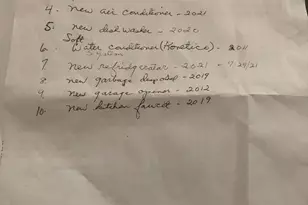 4. new air conditioner - 2021
5. new dishwasher - 2020
Soft
6. Water conditioner (Kinetico) - 2011
System
7 new refridgerator - 2021 - 7/29/21
8 new garbage disposal - 2019
9 new garage opener - 2012
10. new kitchen faucet - 2019